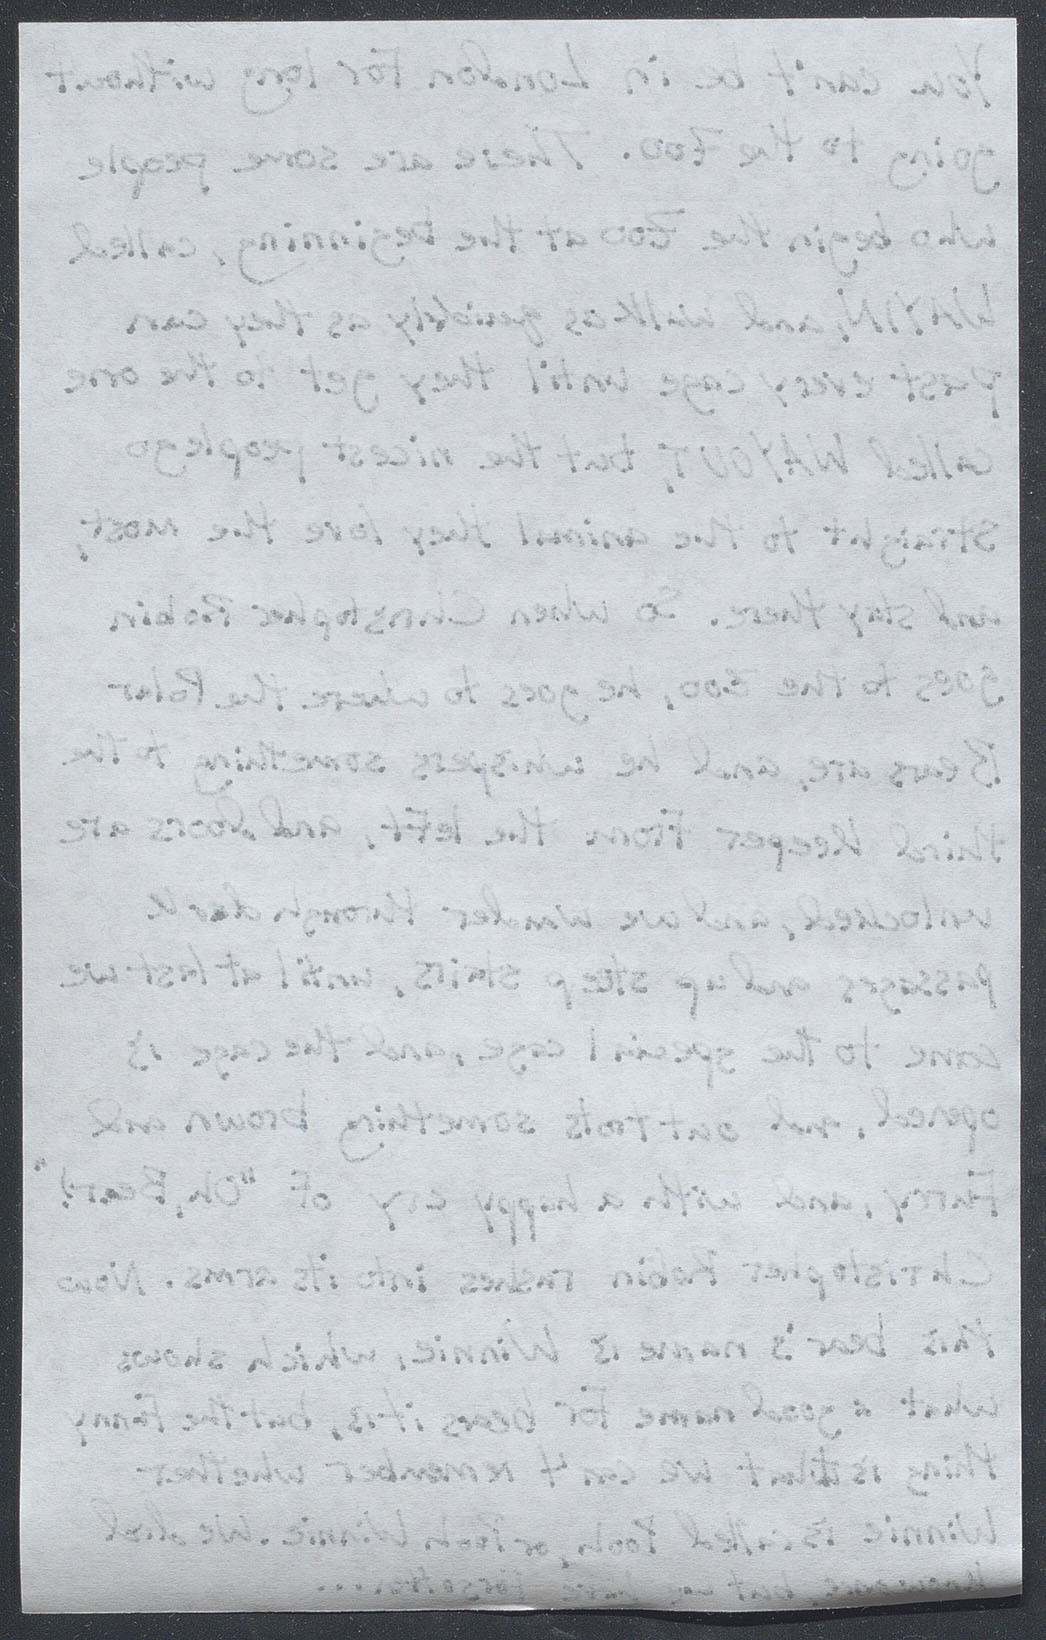 You can't be in London for long without
going to the Zoo. There are some people
who begin the Zoo at the beginning, called
WAYIN, and walk as quickly as they can
past every cage until they get to the one
called WAYOUT, but the nicest people go
straight to the animal they love the most,
and stay there. So when Christopher Robin
goes to the Zoo, he goes to where the Polar
Bears are, and he whispers something to the
third keeper from the left, and doors are
unlocked, and we wander through dark
passages and up steep stairs, until at last we
come to the special cage, and the cage is
opened, and out trots something brown and
furry, and with a happy cry of "Oh, Bear!"
Christopher Robin rushes into its arms. Now
this bear's name is Winnie, which shows
what a good name for bears it is, but the funny
thing is that we can't remember whether
Winnie is called Pooh, or Pooh Winnie. We did
know once, but we have forgotten...